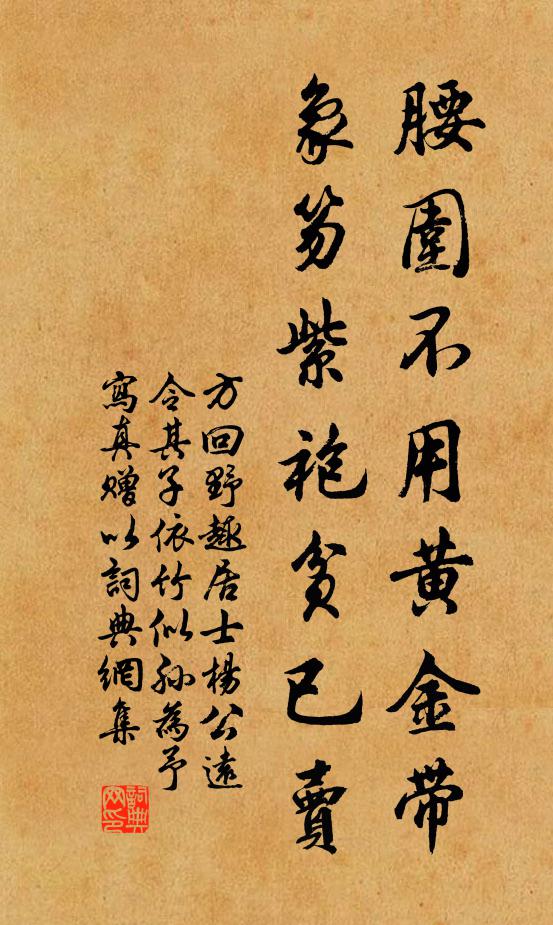 腰圍不用黃金帶
象笏紫袍貧已賣
方回野趣居士楊公遠
令其子依竹似孫為予
寫真贈以詞典網集
詞典網印